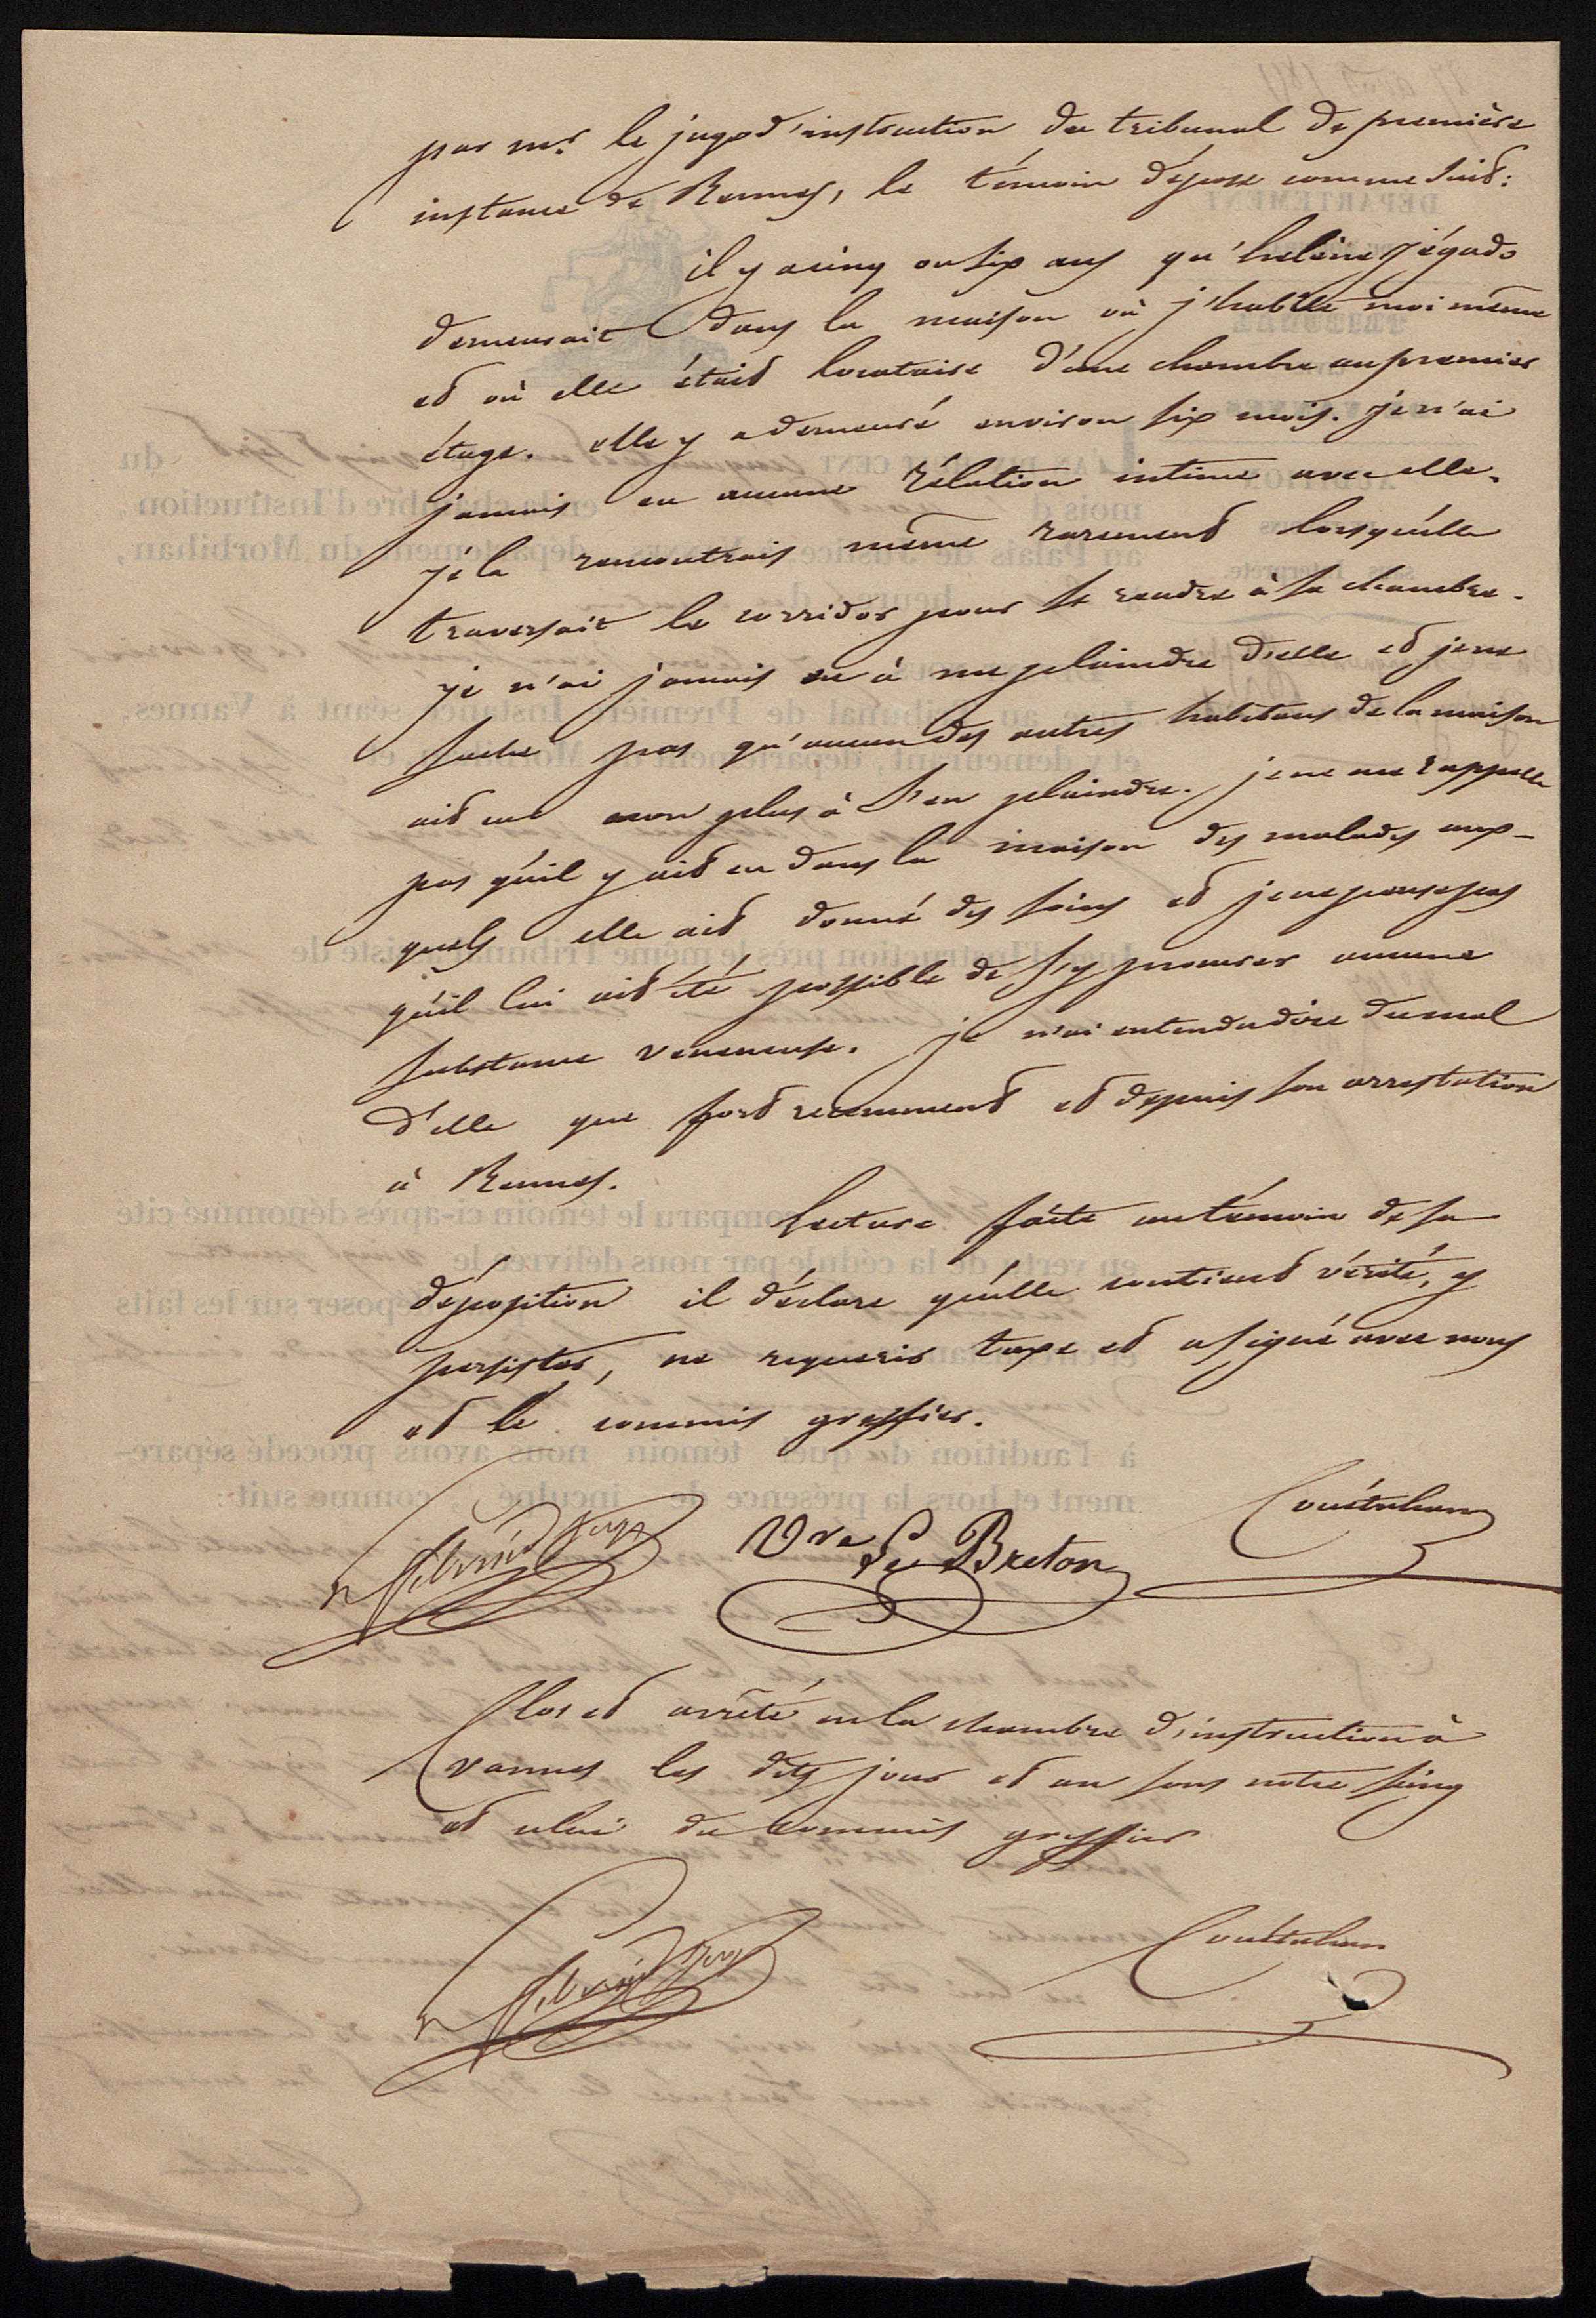 par mr. le juge d'instruction du tribunal de première
instance de Rennes, le témoin dépose comme suit :
il y a cinq ou six ans qu'helène Jégado
demeurait dans la maison où j'habite moi même
et où elle était locataire d'une chambre au premier
étage. elle y a demeuré environ six mois. je n'ai
jamais eu aucune rélation intime avec elle.
je la rencontrais même rarement lorsqu'elle
traversait le corridor pour se rendre à sa chambre.
je n'ai jamais eu à me plaindre d'elle et je ne
sache pas qu'aucun des autres habitans de la maison
ait eu non plus à s'en plaindre. je ne me rappelle
pas qu'il y ait eu dans la maison des malades aux-
quels elle ait donné des soins et je ne pense pas
qu'il lui ait été possible de s'y procurer aucune
substance veneneuse. je n'ai entendu dire du mal
d'elle que fort recemment et depuis son arrestation
à Rennes.
Lecture faite au témoin de sa
déposition il déclare qu'elle contient vérité, y
persister, ne requerir taxe et a signé avec nous
et le commis greffier.
Vve Le Breton
Clos et arrêté en la chambre d'instruction à
Vannes les dits jour et an sous notre seing
et celui du commis greffier